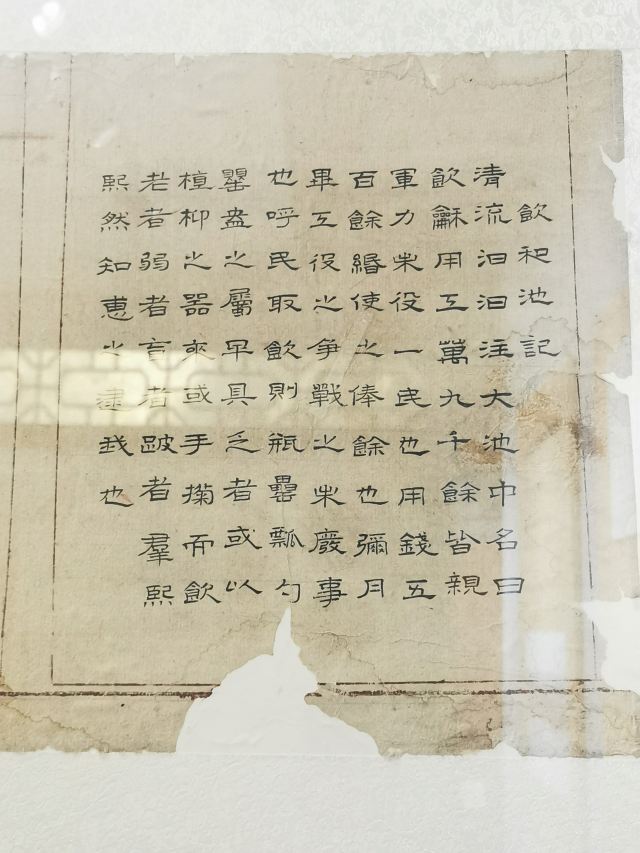 飲和池記
清流汩汩注大池中名曰
飲龢用工萬九千餘皆親
軍力未役一民也用錢五
百餘緡使之俸餘也彌月
畢工役之爭戰之未廢事
也呼民取飲則瓶罍瓢勺
罌盎之屬早具乏者或以
之器來或手掬而飲
老者弱者盲者跛者羣熙
熙然知恵之逮我也